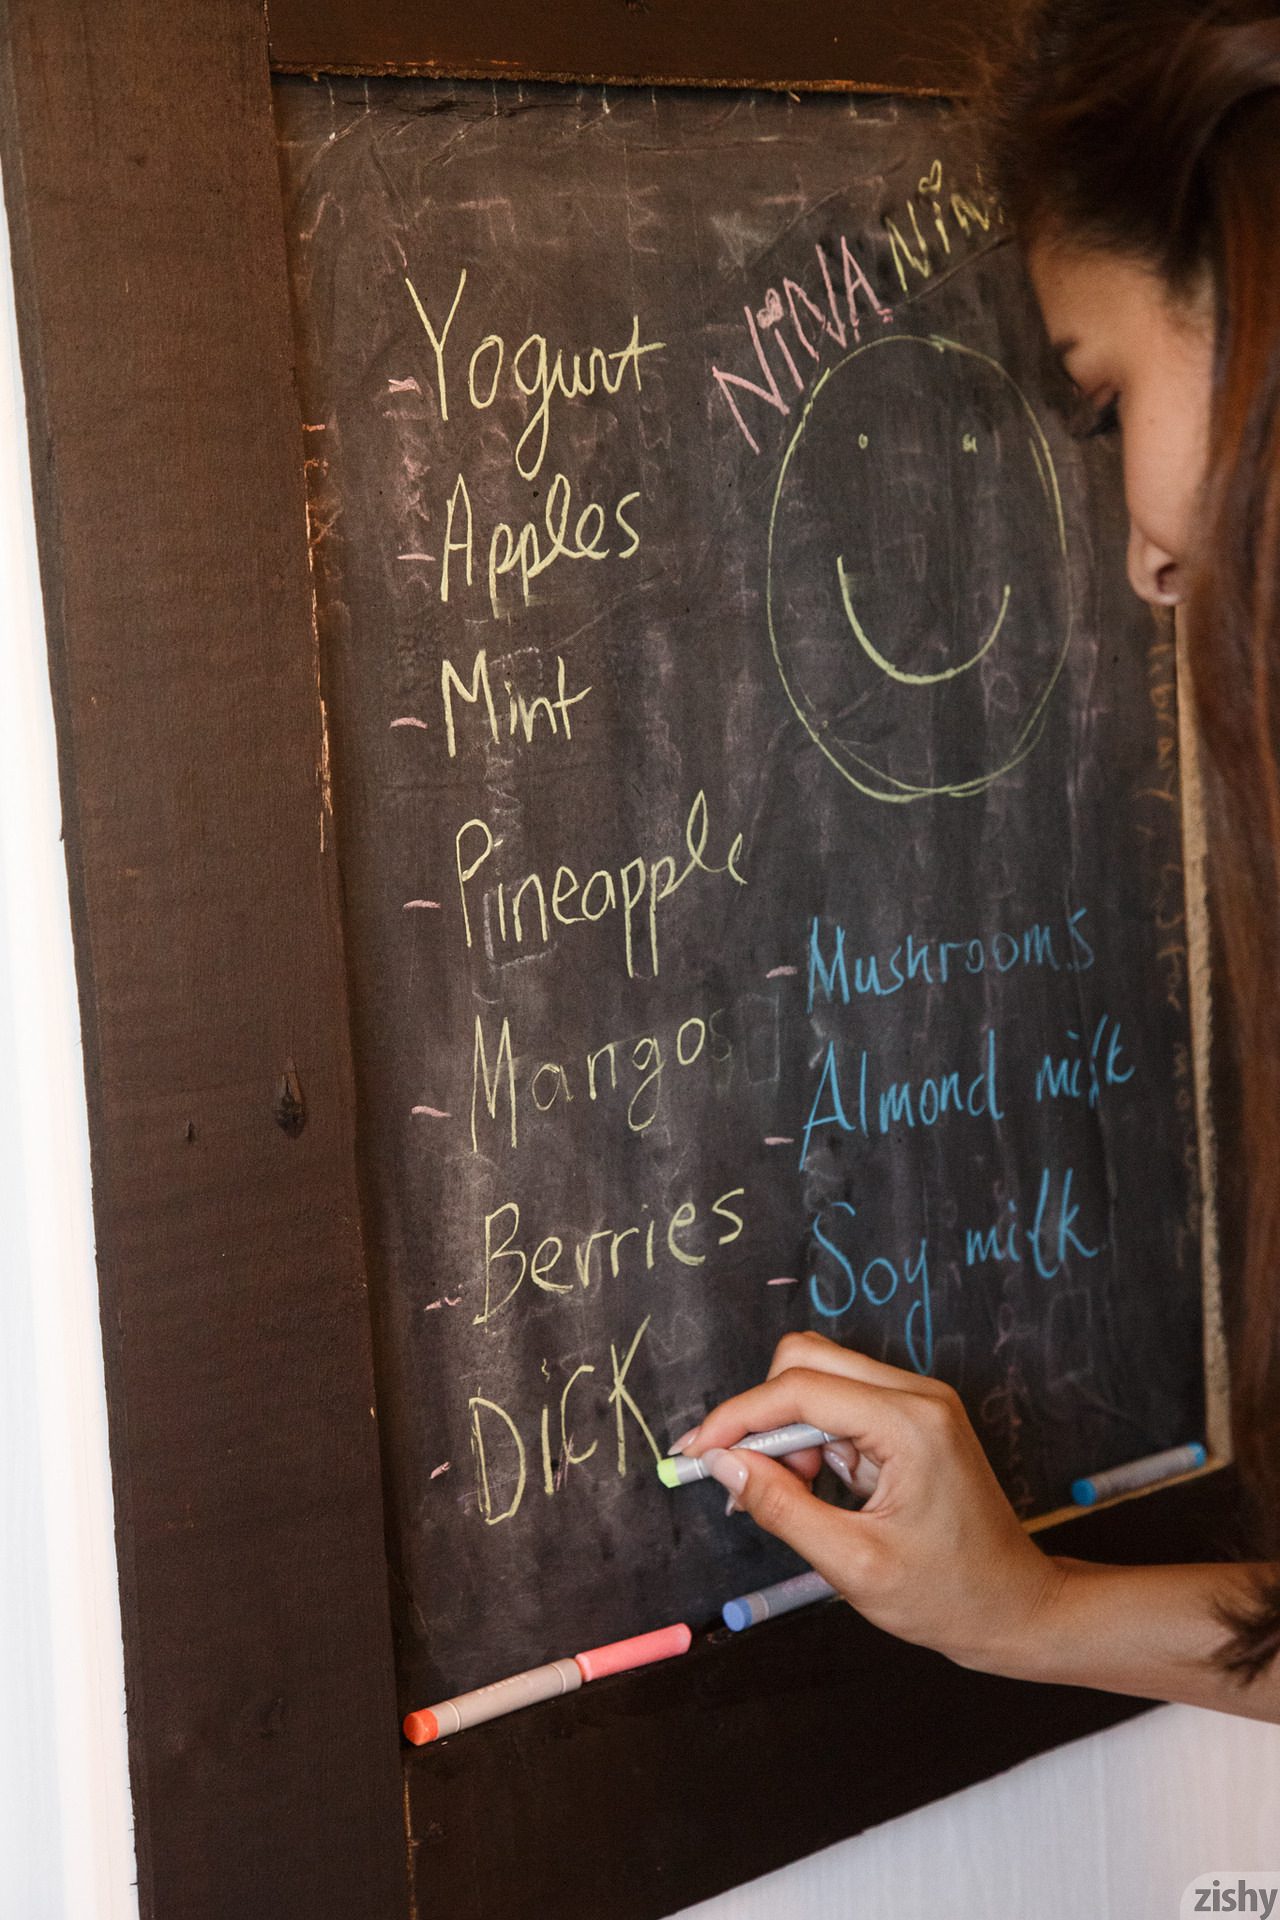 NiNA NiNA
- Yogurt
- Apples
- Mint
- Pineapple
- Mangos
- Berries
- DiCK
- Mushrooms
- Almond milk
- Soy milk
zishy